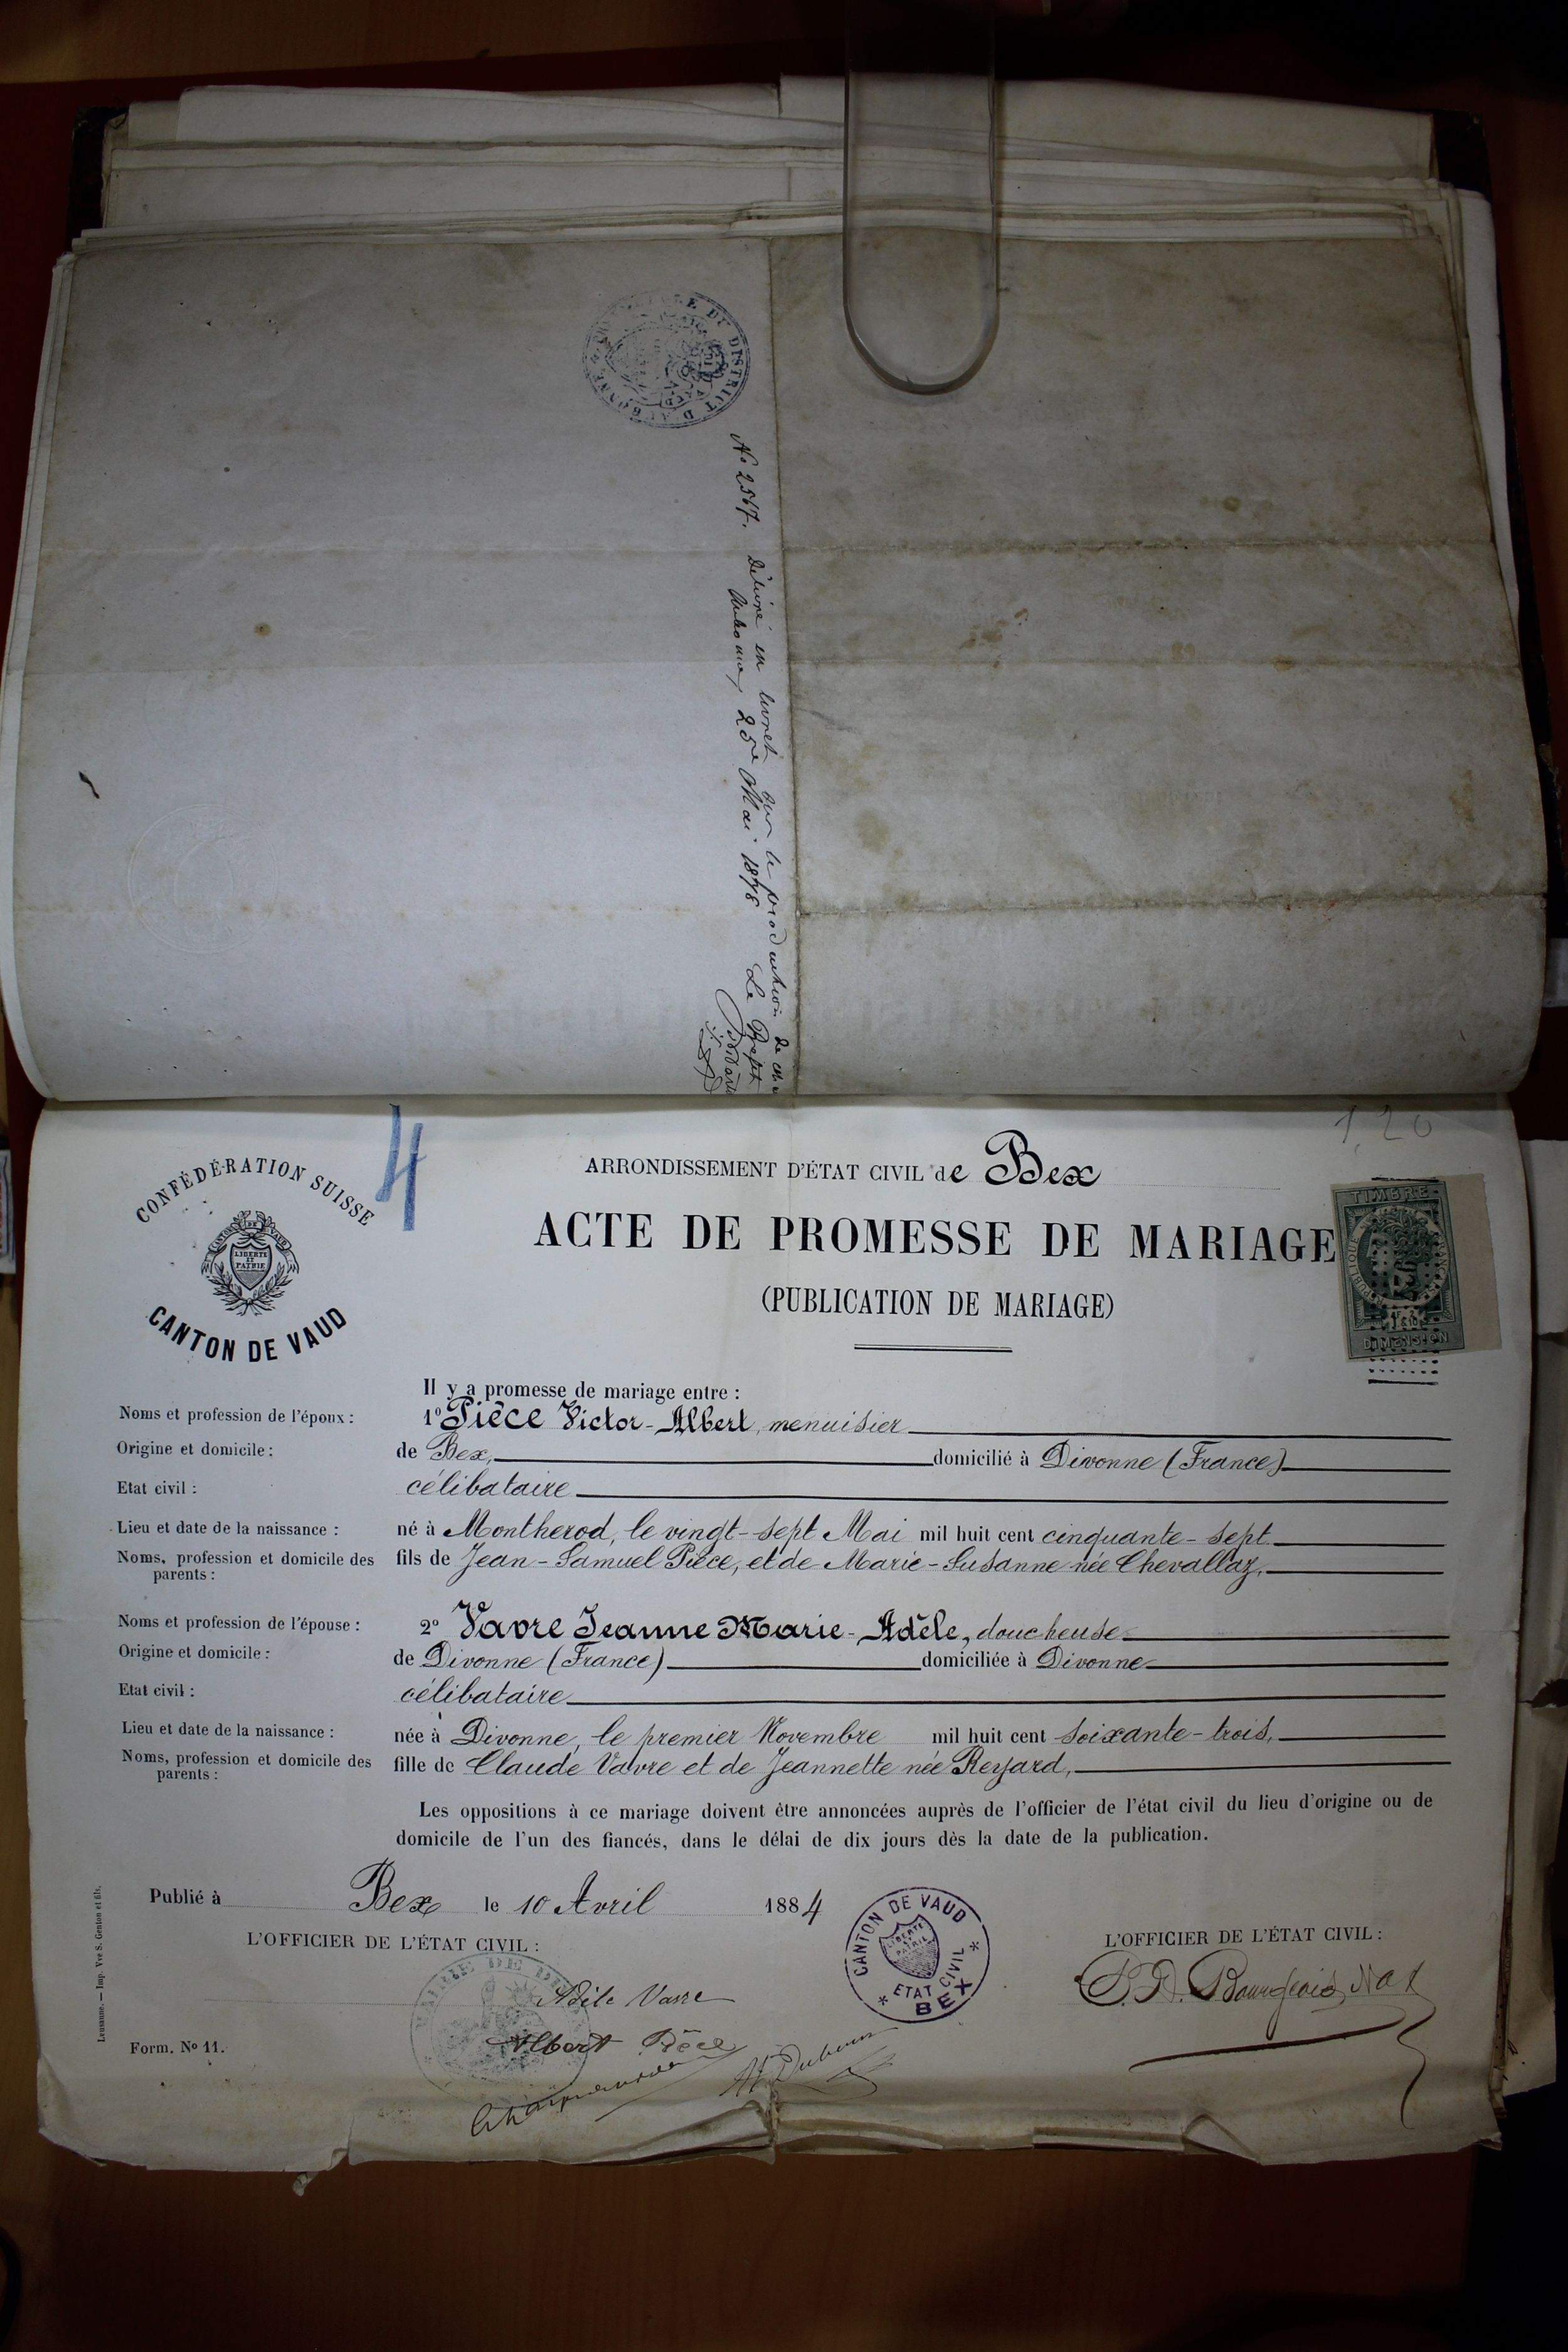 DU DISTRICT D'AUBONNE
No 2567. Délivré en livret sur le production de
Aubonne, 25 Mai 1878 Le Préfet
1,20
4
CONFÉDÉRATION SUISSE
CANTON DE VAUD
LIBERTÉ
ET
PATRIE
CANTON DE VAUD
ARRONDISSEMENT D'ÉTAT CIVIL de Bex
ACTE DE PROMESSE DE MARIAGE
(PUBLICATION DE MARIAGE)
TIMBRE
DIMENSION
Il y a promesse de mariage entre :
Noms et profession de l'époux : 1º Pièce Victor-Albert, menuisier
Origine et domicile : de Bex, domicilié à Divonne (France)
Etat civil : célibataire
Lieu et date de la naissance : né à Montherod, le vingt-sept Mai mil huit cent cinquante-sept
Noms, profession et domicile des parents : fils de Jean-Samuel Pièce, et de Marie-Susanne née Chevallaz,
Noms et profession de l'épouse : 2º Vavre Jeanne Marie-Adèle, doucheuse
Origine et domicile : de Divonne (France) domiciliée à Divonne
Etat civil : célibataire
Lieu et date de la naissance : née à Divonne, le premier Novembre mil huit cent soixante-trois,
Noms, profession et domicile des parents : fille de Claude Vavre et de Jeannette née Reyard,
Les oppositions à ce mariage doivent être annoncées auprès de l'officier de l'état civil du lieu d'origine ou de
domicile de l'un des fiancés, dans le délai de dix jours dès la date de la publication.
Publié à Bex le 10 Avril 1884
L'OFFICIER DE L'ÉTAT CIVIL :
L'OFFICIER DE L'ÉTAT CIVIL :
CANTON DE VAUD
LIBERTÉ
ET
PATRIE
* ETAT CIVIL *
BEX
MAIRIE DE
Adèle Vavre
Albert Pièce
Bourgeois Not
Form. Nº 11.
Lausanne. — Imp. Vve S. Genton et fils.